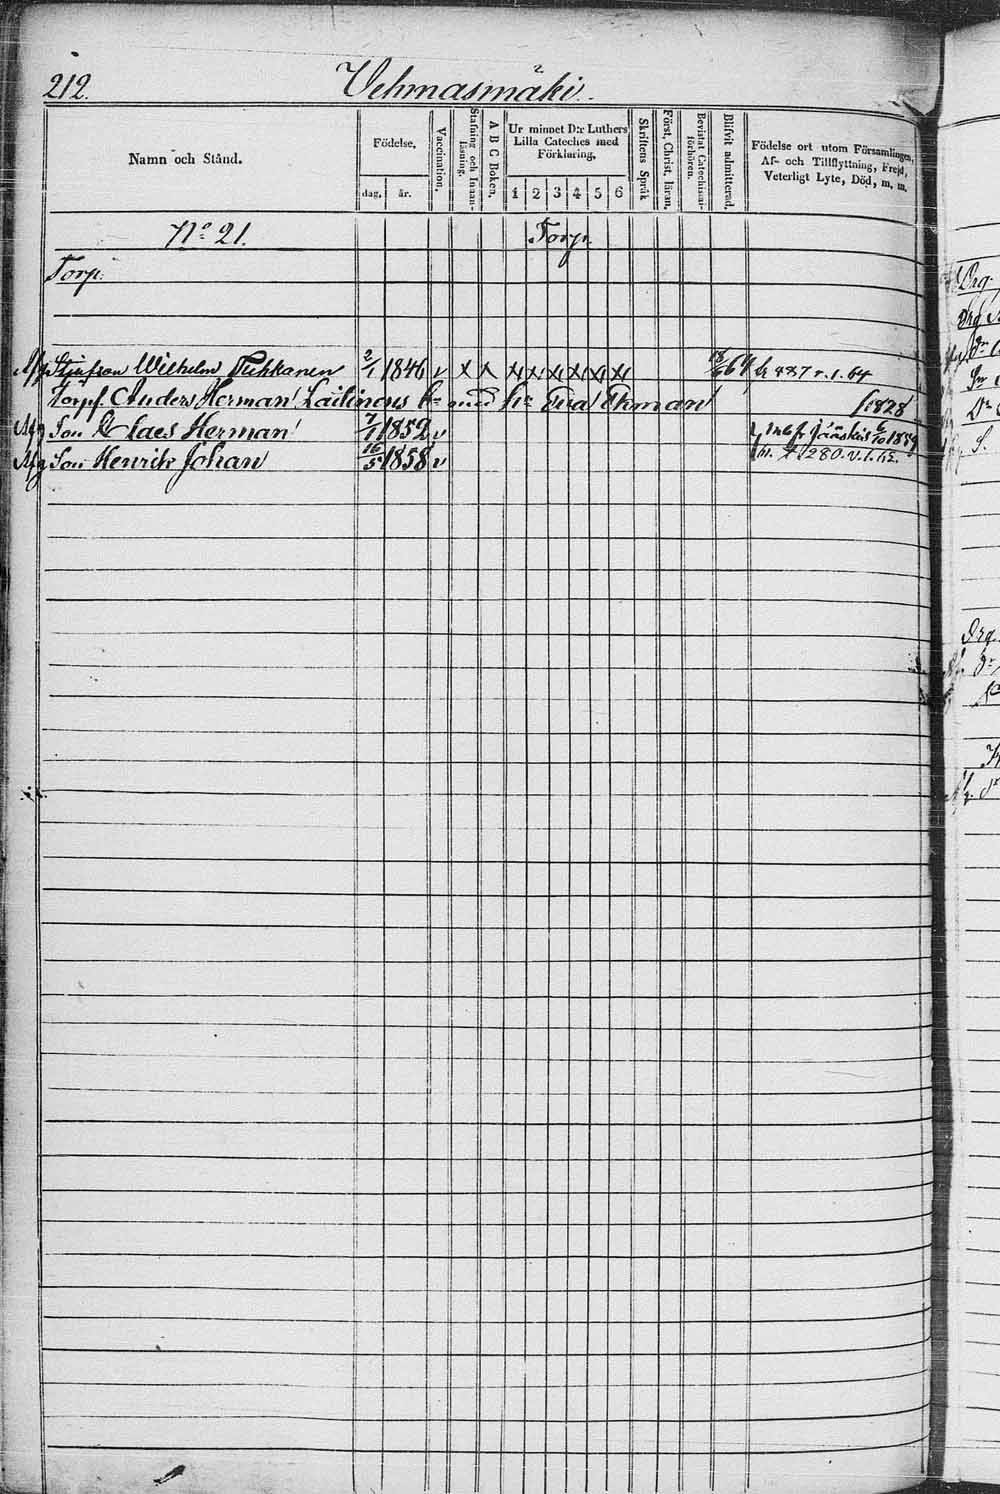 212.
Vehmasmäki.
Namn och Stånd.
Födelse,
dag. år.
Vaccination.
Stafning och Innanläsning.
A B C Boken.
Ur minnet D:r Luthers Lilla Cateches med Förklaring,
1 2 3 4 5 6
Skriftens Språk
Först. Christ. läran.
Bevistat Catechisaiförhören.
Blifvit admitterad.
Födelse ort utom Församlingen, Af- och Tillflyttning, Frejd, Veterligt Lyte, Död, m. m.
No 21. Torp.
Torp.
Afg Stjufson Wilhelm 2/1 1846 v x x x x x x x x 64 487 v. l. 64
Torpf. Anders Herman Laitinens med Eva Ekman f. 1828
Afg Son Claes Herman 7/1 1852 v Jääskis 6/10 1859
Afg Son Henrik Johan 16/5 1858 v 280. v. l.
Drq.